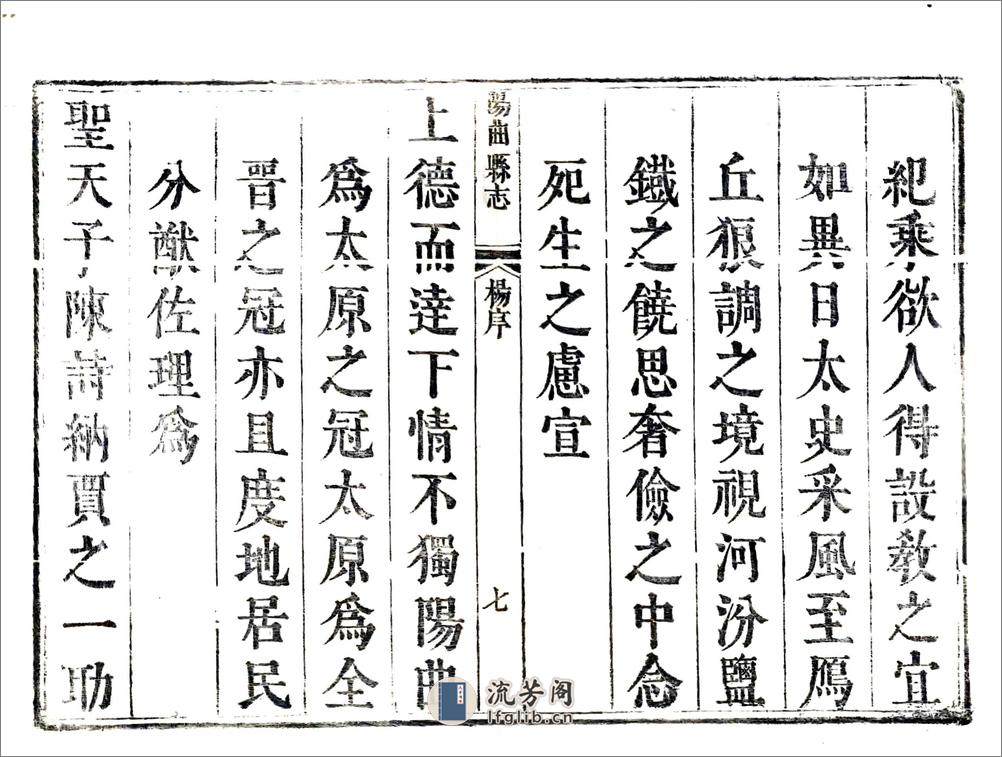 紀乘欲人得設教之宜
如異日太史采風至鴈
丘狼調之境視河汾鹽
鐵之饒思奢儉之中念
死生之慮宣
陽曲縣志
楊序
七
上德而達下情不獨陽曲
爲太原之冠太原爲全
晉之冠亦且度地居民
分猷佐理爲
聖天子陳詩納賈之一助
流芳阁
lfglib.cn